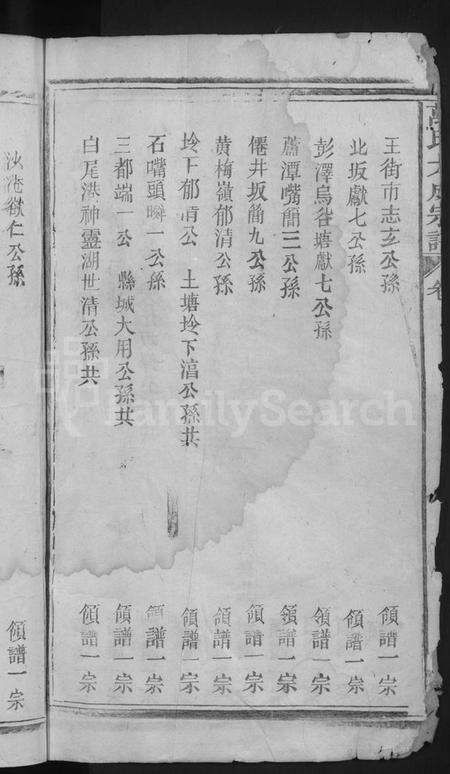 大成宗譜 卷
王街市志玄公孫 領譜一宗
北坂獻七公孫 領譜一宗
彭澤烏省塘獻七公孫 領譜一宗
蘆潭嘴簡三公孫 領譜一宗
僊井坂簡九公孫 領譜一宗
黃梅嶺郁清公孫 領譜一宗
垅下郁清公 土塘垅下涫公孫共 領譜一宗
石嘴頭瞬一公孫 領譜一宗
三都端一公 縣城大用公孫共 領譜一宗
白尾港神靈湖世清公孫共 領譜一宗
汝港欽仁公孫 領譜一宗
FamilySearch